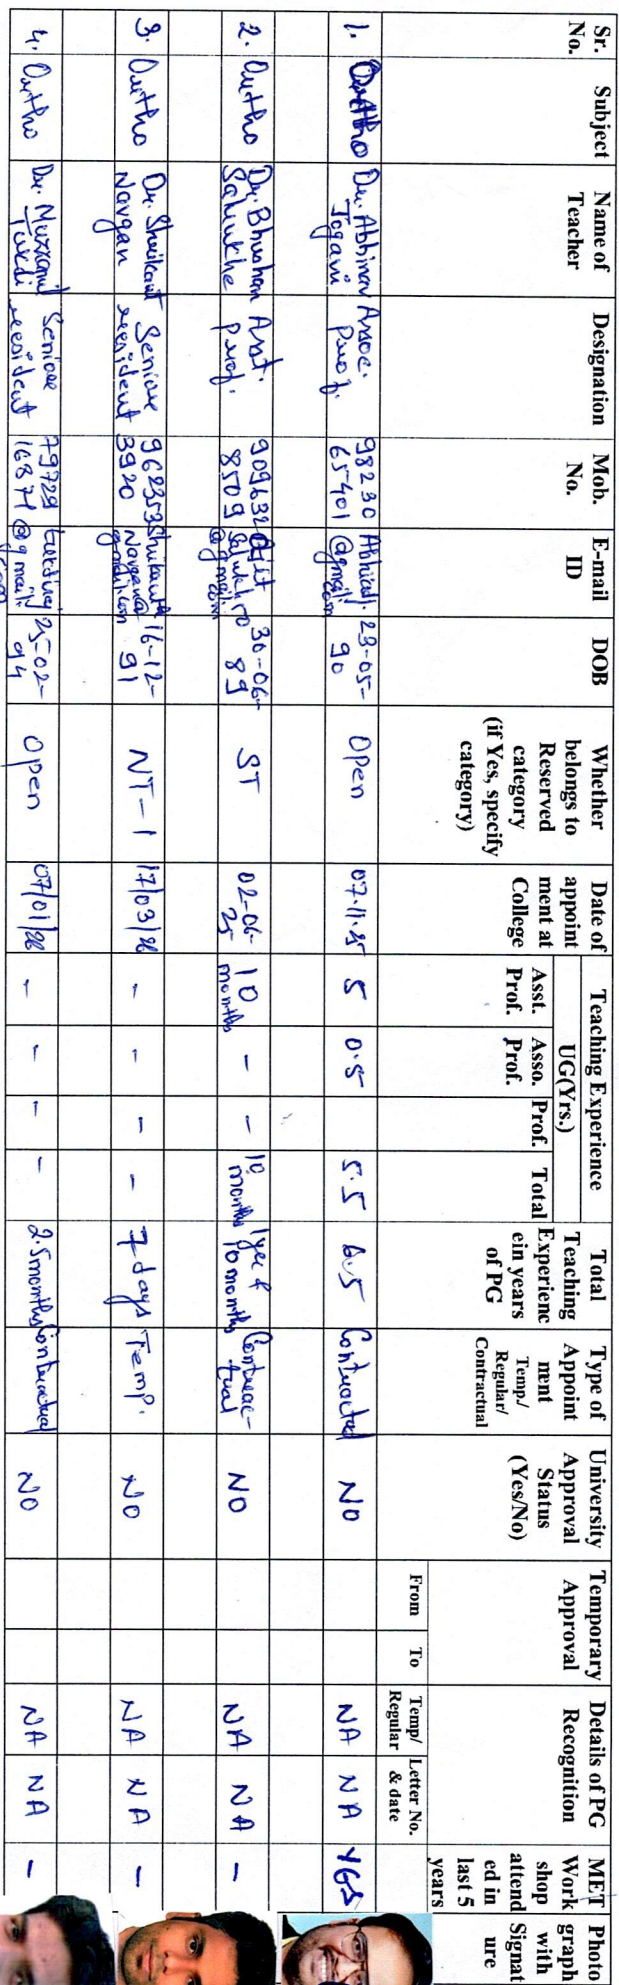 Sr. No.
Subject
Name of Teacher
Designation
Mob. No.
E-mail ID
DOB
Whether belongs to Reserved category (if Yes, specify category)
Date of appoint ment at College
Teaching Experience
UG(Yrs.)
Asst. Prof.
Asso. Prof.
Prof.
Total
Total Teaching Experienc ein years of PG
Type of Appoint ment Temp./ Regular/ Contractual
University Approval Status (Yes/No)
Temporary Approval
From
To
Details of PG Recognition
Temp/ Regular
Letter No. & date
MET Work shop attend ed in last 5 years
Photo graph with Signat ure
1. Ortho Dr. Abhinav Jogani Assoc. Prof. 98230 65401 @gmail. com 23-05-90 Open 07.11.25 5 0.5 5.5 6.5 Contracted NO NA NA YES
2. Ortho Dr. Bhushan Salunkhe Asst. Prof. 909632 8509 @gmail. com 30-06-89 ST 02-06-25 10 months - - 10 months 1 year 10 months Contrac-tual NO NA NA -
3. Ortho Dr. Shrikant Navgan Senior resident 962353 3920 gmail.com 16-12-91 NT-1 17/03/26 - - - - 7 days Temp. NO NA NA -
4. Ortho Dr. Muzzamil Tukdi Senior resident 79729 16871 @gmail. com 25-02-94 Open 07/01/26 - - - - 2.5 months Contractual NO NA NA -